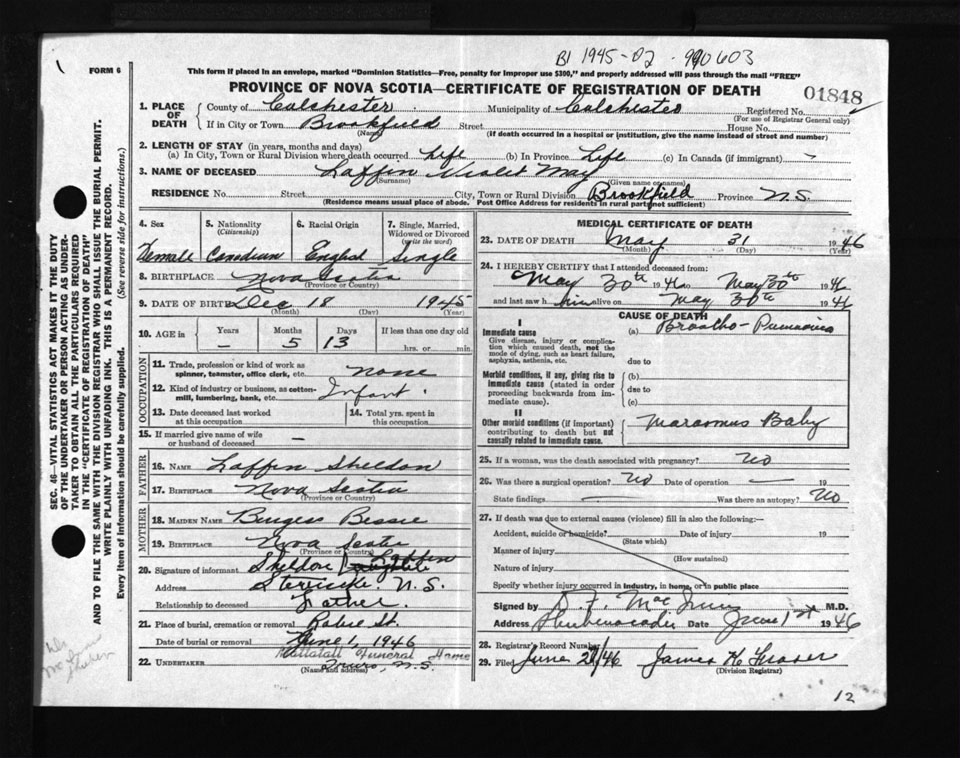 B1 1945-02 - 990603
FORM 6
This form if placed in an envelope, marked "Dominion Statistics—Free, penalty for improper use $300," and properly addressed will pass through the mail "FREE"
PROVINCE OF NOVA SCOTIA—CERTIFICATE OF REGISTRATION OF DEATH
01848
1. PLACE OF DEATH County of Colchester Municipality of Colchester Registered No.
(For use of Registrar General only)
If in City or Town Brookfield Street House No.
(Name) (If death occurred in a hospital or institution, give the name instead of street and number)
2. LENGTH OF STAY (in years, months and days)
(a) In City, Town or Rural Division where death occurred Life (b) In Province Life (c) In Canada (if immigrant) -
3. NAME OF DECEASED Laffin Violet May
(Surname) (Given name or names)
RESIDENCE No. Street City, Town or Rural Division Brookfield Province N.S.
(Residence means usual place of abode. Post Office Address for residents in rural parts not sufficient)
4. Sex 5. Nationality (Citizenship) 6. Racial Origin 7. Single, Married, Widowed or Divorced (write the word)
Female Canadian English Single
8. BIRTHPLACE Nova Scotia
(Province or Country)
9. DATE OF BIRTH Dec 18 1945
(Month) (Day) (Year)
10. AGE in Years Months Days If less than one day old
- 5 13 hrs. or min.
OCCUPATION
11. Trade, profession or kind of work as spinner, teamster, office clerk, etc. none
12. Kind of industry or business, as cotton-mill, lumbering, bank, etc. Infant.
13. Date deceased last worked at this occupation 14. Total yrs. spent in this occupation
15. If married give name of wife or husband of deceased -
FATHER
16. NAME Laffin Sheldon
17. BIRTHPLACE Nova Scotia
(Province or Country)
MOTHER
18. MAIDEN NAME Burgess Bessie
19. BIRTHPLACE Nova Scotia
(Province or Country)
20. Signature of informant Sheldon Laffin
Address N.S.
Relationship to deceased Father.
21. Place of burial, cremation or removal
Date of burial or removal June 1, 1946
22. UNDERTAKER Mattatall Funeral Home
Truro, N.S.
(Name and address)
MEDICAL CERTIFICATE OF DEATH
23. DATE OF DEATH May 31 1946
(Month) (Day) (Year)
24. I HEREBY CERTIFY that I attended deceased from:
May 30th 1946 to May 30th 1946
and last saw him alive on May 30th 1946
CAUSE OF DEATH
I
Immediate cause (a) Broncho-Pneumonia
Give disease, injury or complication which caused death, not the mode of dying, such as heart failure, asphyxia, asthenia, etc.
due to
Morbid conditions, if any, giving rise to immediate cause (stated in order proceeding backwards from immediate cause). (b)
due to
(c)
II
Other morbid conditions (if important) contributing to death but not causally related to immediate cause. Marasmus Baby
25. If a woman, was the death associated with pregnancy? No
26. Was there a surgical operation? No Date of operation — 19
State findings — Was there an autopsy? No
27. If death was due to external causes (violence) fill in also the following:—
Accident, suicide or homicide? Date of injury 19
(State which)
Manner of injury
(How sustained)
Nature of injury
Specify whether injury occurred in industry, in home, or in public place
Signed by D. F. MacInnis M.D.
Address Shubenacadie Date June 1st 1946
28. Registrar's Record Number
29. Filed June 2/46 James K Fraser
(Division Registrar)
12
SEC. 46—VITAL STATISTICS ACT MAKES IT THE DUTY
OF THE UNDERTAKER OR PERSON ACTING AS UNDERTAKER TO OBTAIN ALL THE PARTICULARS REQUIRED
IN THE "CERTIFICATE OF REGISTRATION OF DEATH"
AND TO FILE THE SAME WITH THE DIVISION REGISTRAR WHO SHALL ISSUE THE BURIAL PERMIT.
WRITE PLAINLY WITH UNFADING INK. THIS IS A PERMANENT RECORD.
Every item of information should be carefully supplied. (See reverse side for instructions.)